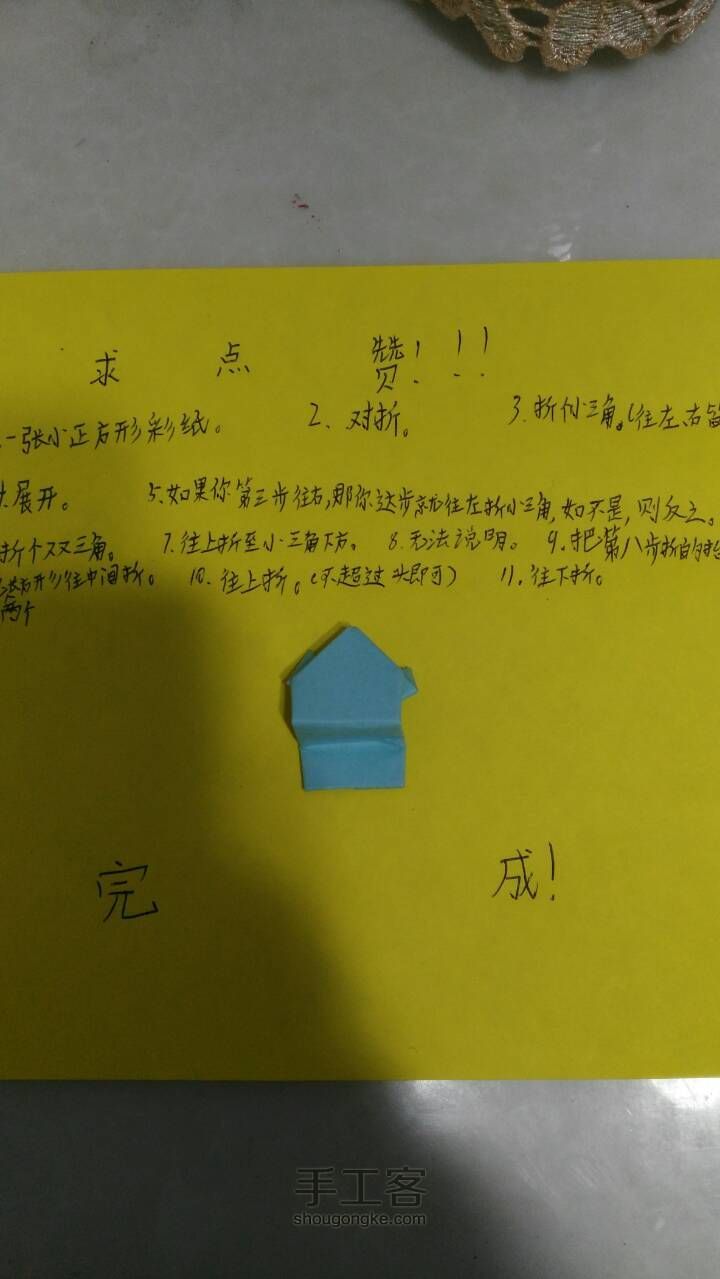 求 点 赞！！！
一张小正方形彩纸。 2、对折。 3.折个小三角。(往左、右皆
展开。 5.如果你第三步往右,那你这步就往左折小三角,如不是,则反之。
折个双三角。 7.往上折至小三角下方。 8.无法说明。 9.把第八步折的
长方形往中间折。 10.往上折。(不超过头即可) 11.往下折。
两个
完 成!
手工客
shougongke.com